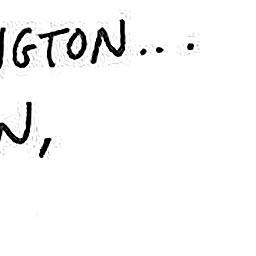 NGTON...
N,